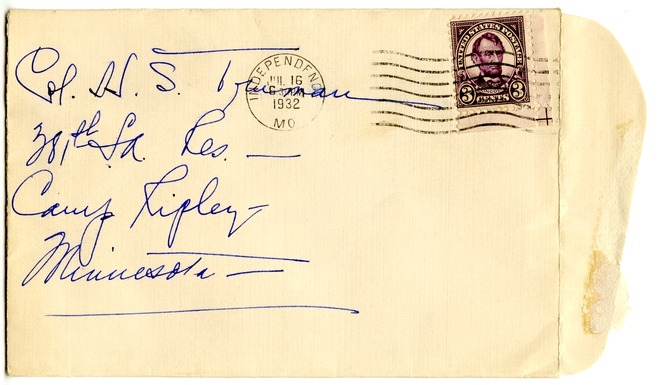 Col. H. S. Truman
381st F.A. Res. —
Camp Ripley —
Minnesota —
INDEPENDENCE
JUL 16
1932
MO.
UNITED STATES POSTAGE
LINCOLN
3 CENTS 3